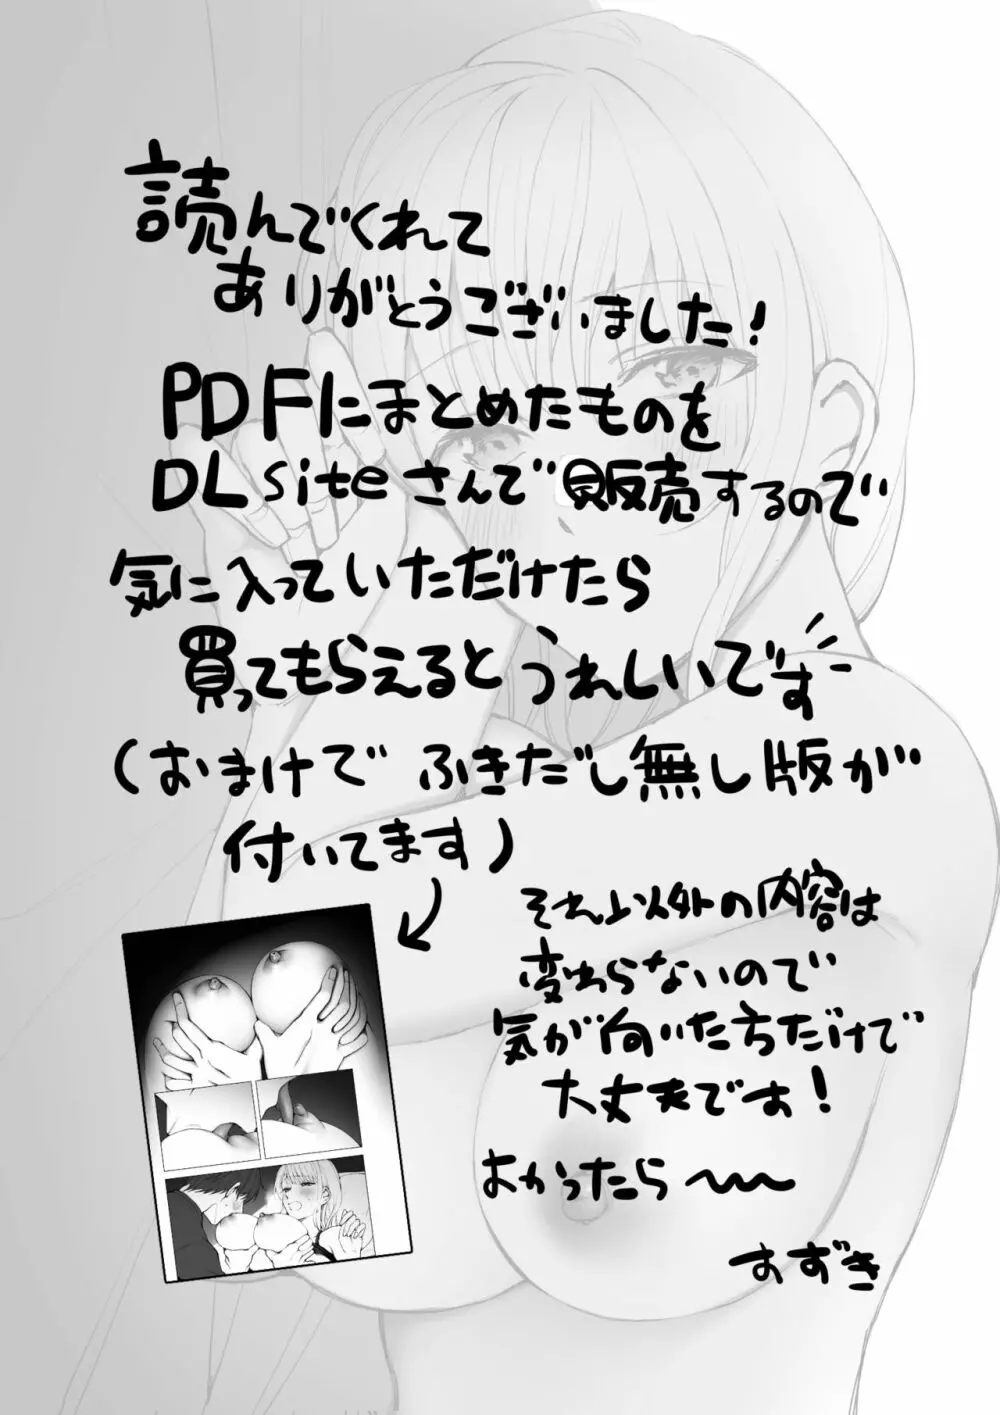 読んでくれて
ありがとうございました!
PDFにまとめたものを
DLsiteさんで販売するので
気に入っていただけたら
買ってもらえるとうれしいです
(おまけでふきだし無し版が
付いてます)
それ以外の内容は
変わらないので
気が向いた方だけで
大丈夫です!
よかったら〜
すずき